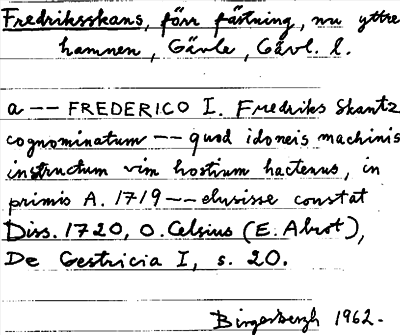 Fredriksskans, förr fästning, nu yttre
hamnen, Gävle, Gävl. l.
a -- FREDERICO I. Fredriks Skantz
cognominatum -- quod idoneis machinis
instructum vim hostium hactenus, in
primis A. 1719 -- elusisse constat
Diss. 1720, O. Celsius (E. Abrot),
De Gestricia I, s. 20.
Birgerbergh 1962.